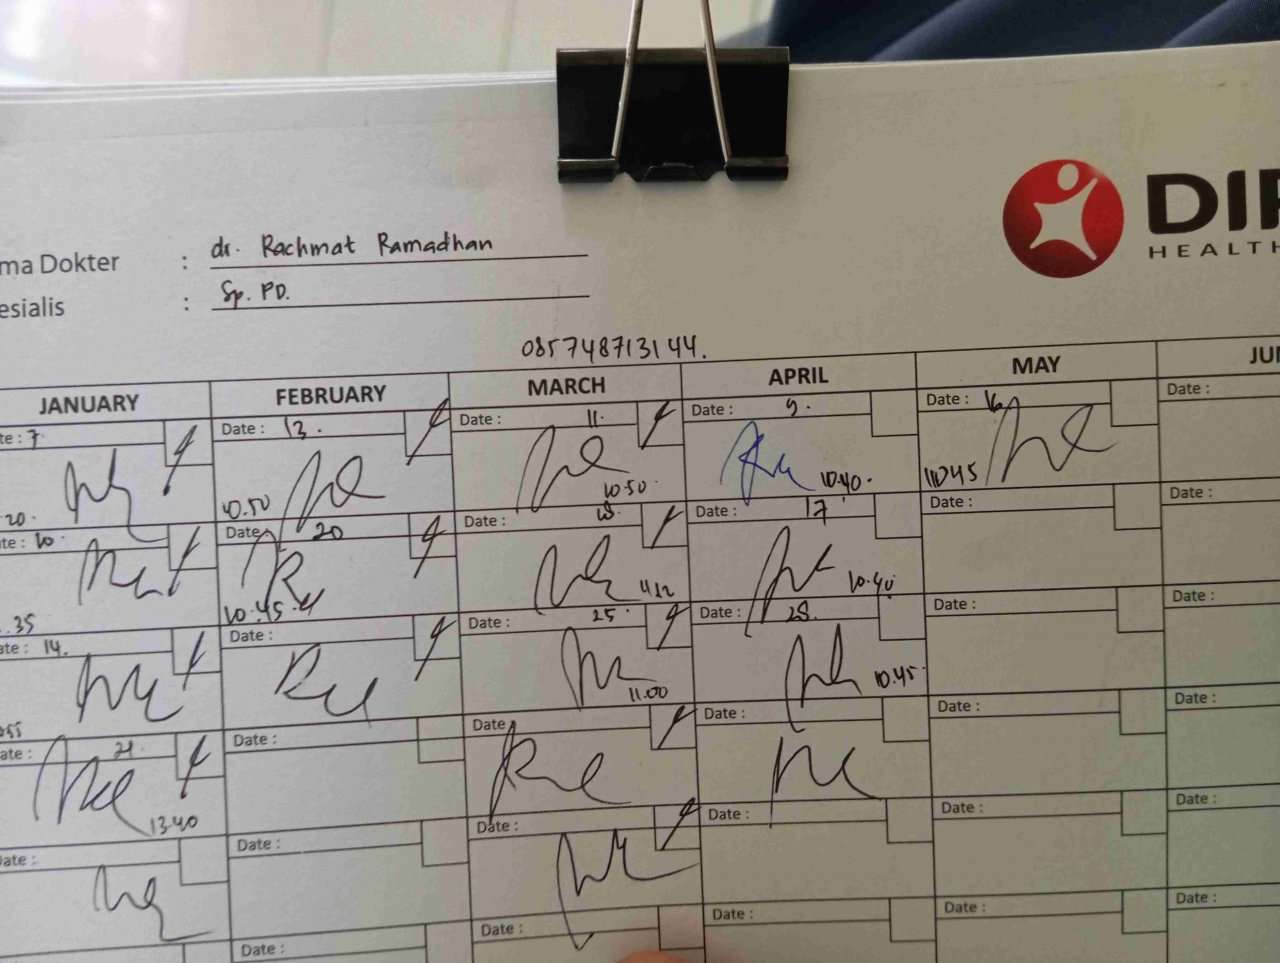 DI
HEALTH
ma Dokter : dr. Rachmat Ramadhan
esialis : Sp. PD.
085748713144.
JANUARY FEBRUARY MARCH APRIL MAY JU
te : 7. Date : 13. Date : 11. Date : 9. Date : 16
20. 10.50 10.50 10.40. 11045
te : 10 Date 20 Date : 18. Date : 17 Date : Date :
.35 10.45 1112 10.40
ate : 14. Date : Date : 25. Date : 28. Date : Date :
055 11.00 10.45.
ate : 21. Date : Date Date : Date : Date :
13.40
ate : Date : Date : Date : Date : Date :
Date : Date : Date : Date : Date :